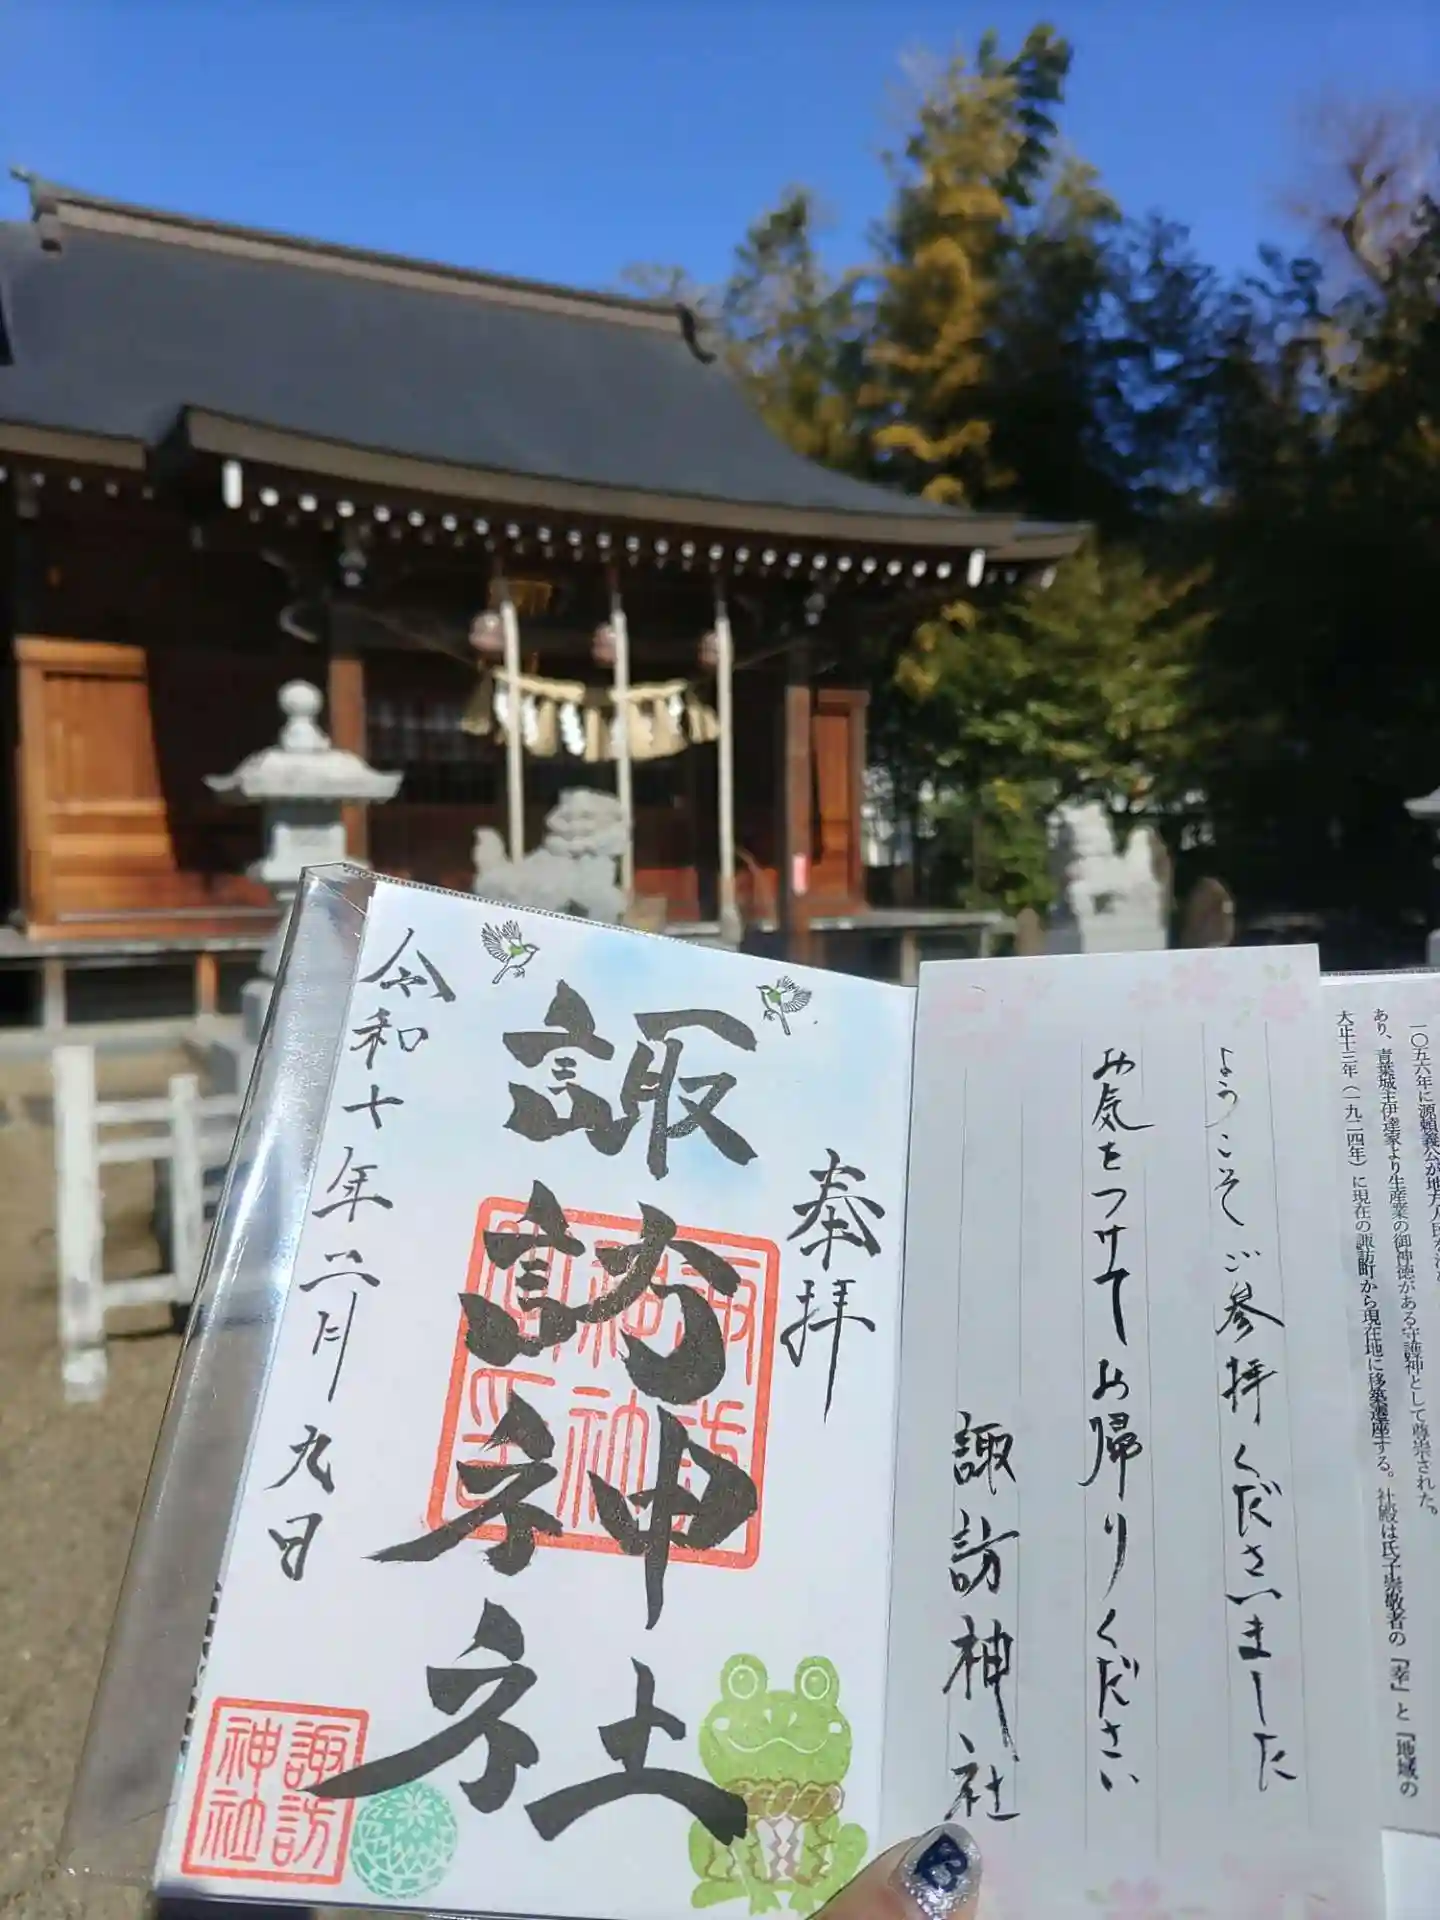 一〇五六年に源頼義公が地方人民を
あり、青葉城主伊達家より生産業の御神徳がある守護神として尊崇された。
大正十三年（一九二四年）に現在の諏訪町から現在地に移築遷座する。社殿は氏子崇敬者の『幸』と『地域の
ようこそご参拝くださいました
お気をつけてお帰りください
諏訪神社
奉拝
諏訪神社
令和七年二月九日
諏訪神社